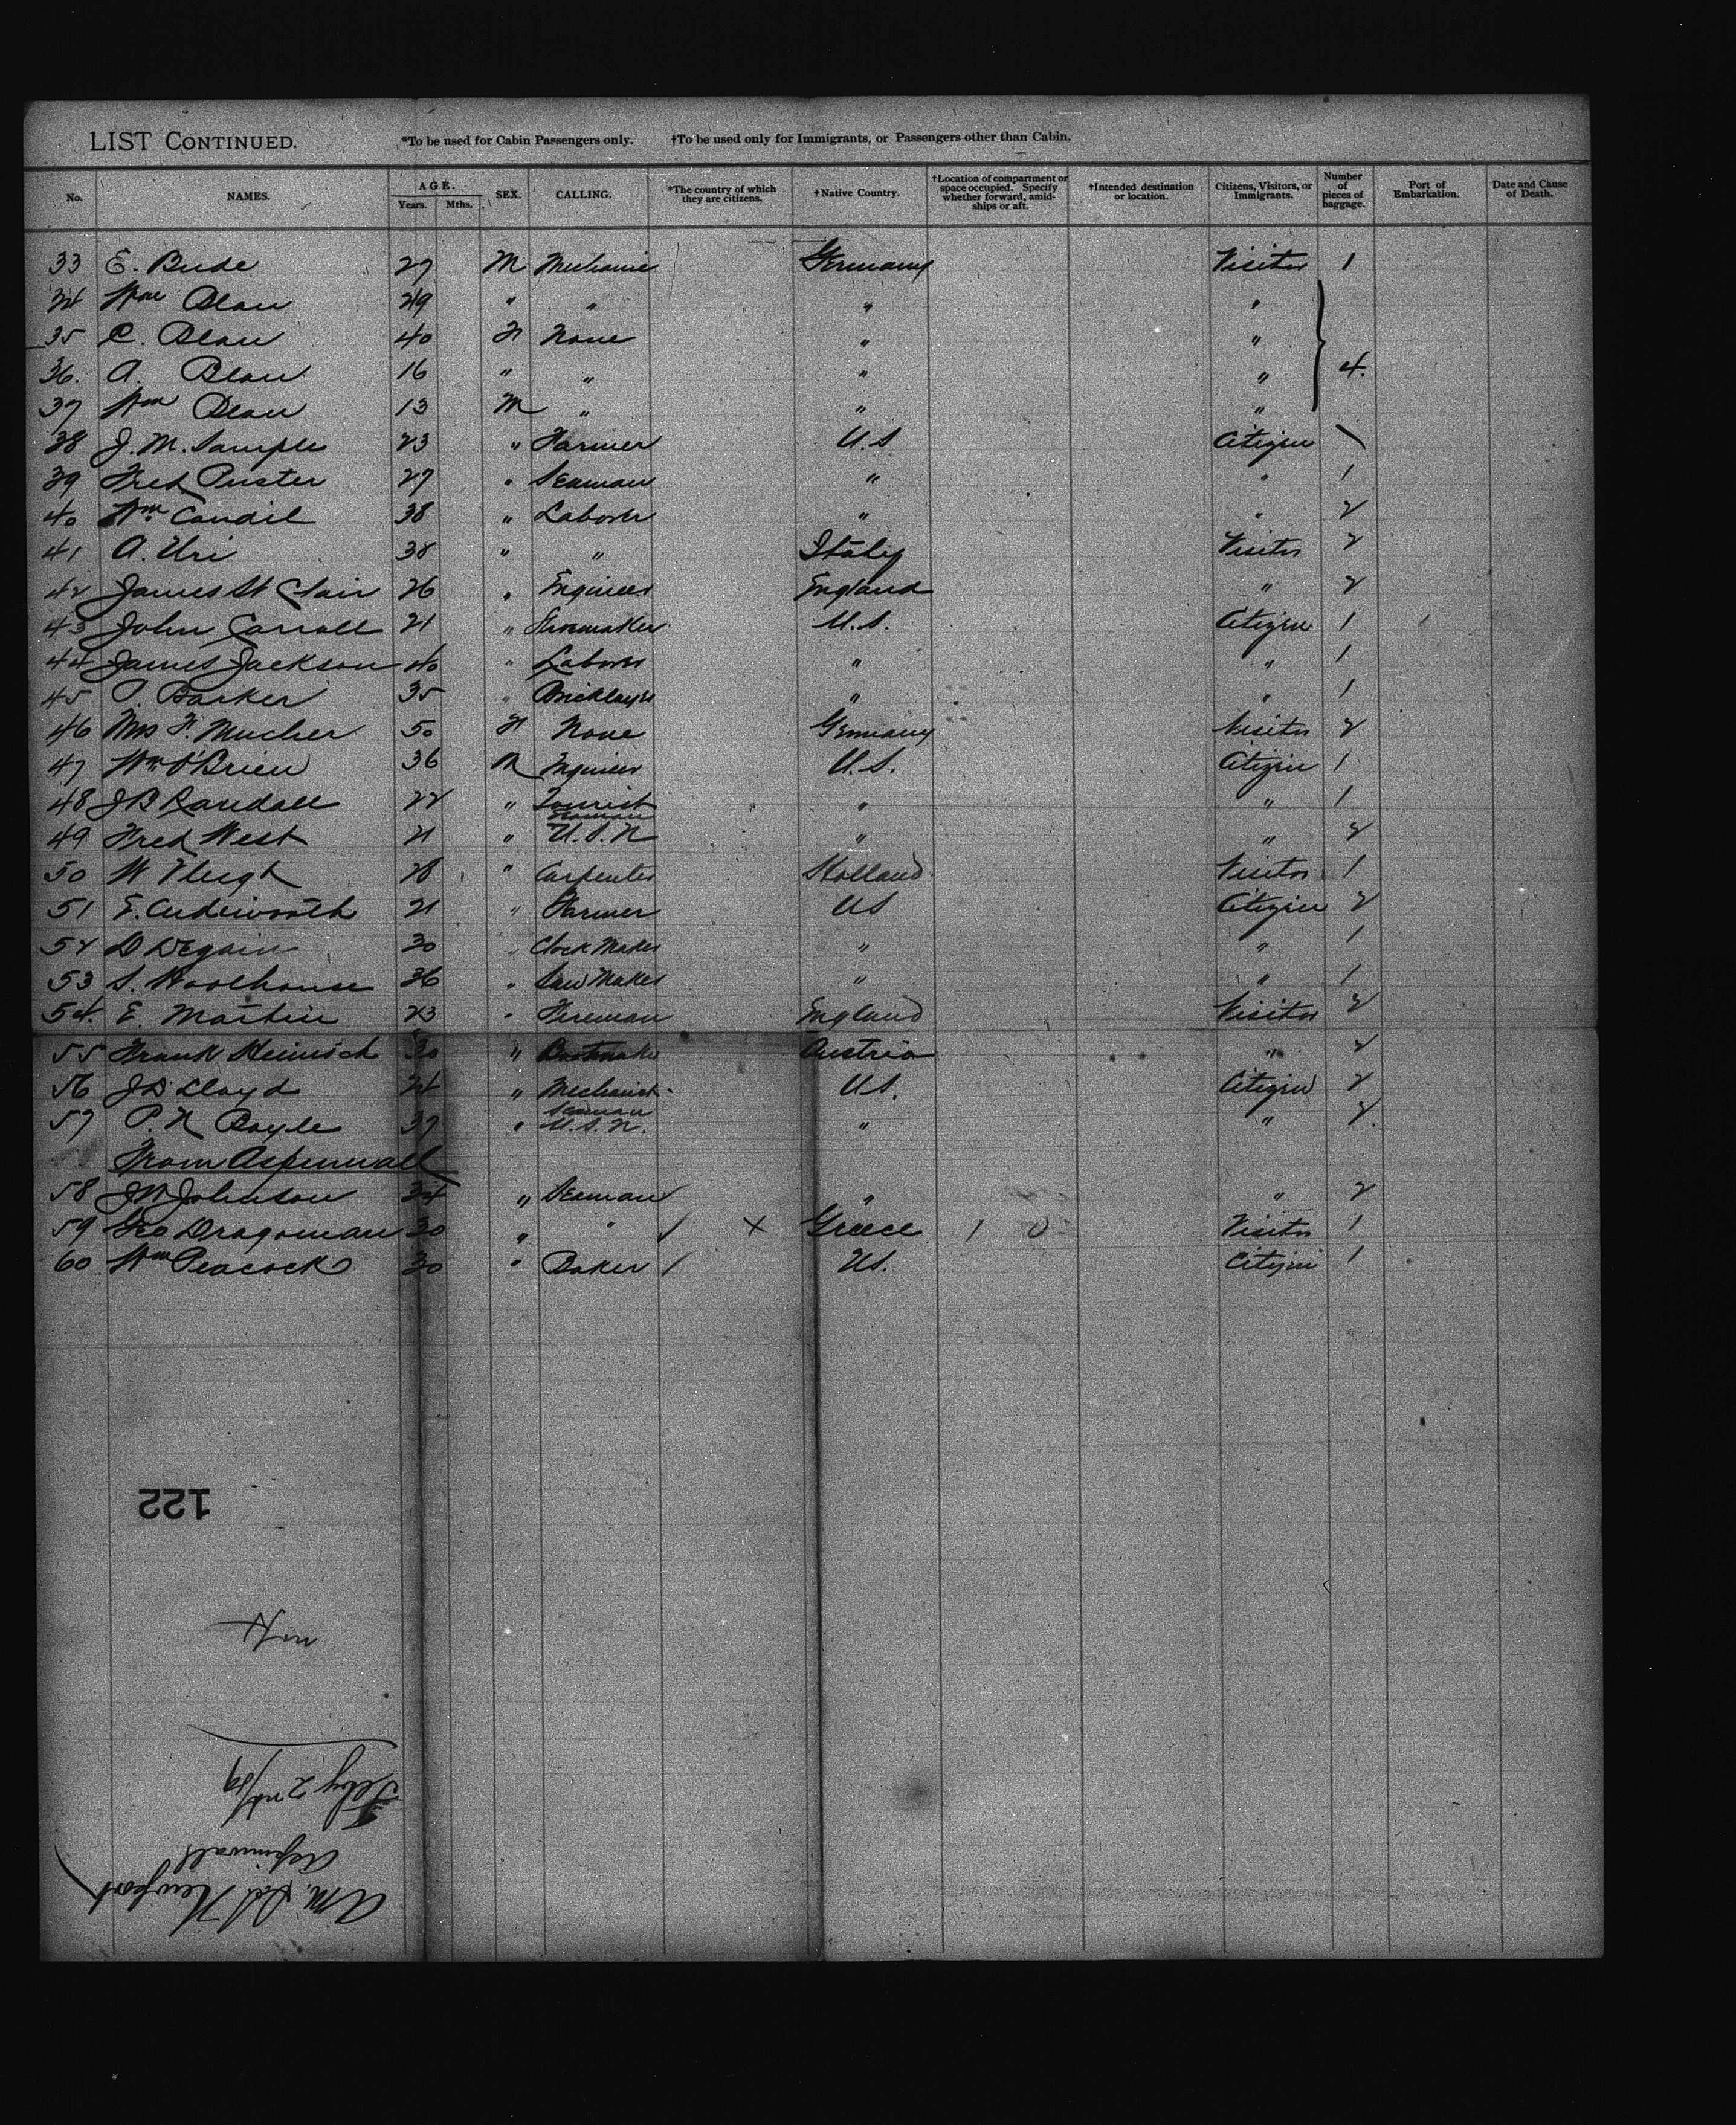 LIST CONTINUED. *To be used for Cabin Passengers only. †To be used only for Immigrants, or Passengers other than Cabin.
No. NAMES. AGE. Years. Mths. SEX. CALLING. *The country of which they are citizens. †Native Country. †Location of compartment or space occupied. Specify whether forward, amidships or aft. †Intended destination or location. Citizens, Visitors, or Immigrants. Number of pieces of baggage. Port of Embarkation. Date and Cause of Death.
33 E. Bude 27 M Mechanic Germany Visitor 1
34 Wm Blau 49 " " " "
35 C. Blau 40 F None " "
36. A. Blau 16 " " " " 4.
37 Wm Blau 13 M " " "
38 J. M. Sample 23 " Farmer U.S Citizen \
39 Fred Puster 27 " Seaman " " 1
40 Wm Caudil 38 " Laborer " " 2
41 A. Uri 38 " " Italy Visitor 2
42 James St Clair 26 " Engineer England " 2
43 John Carroll 21 " Shoemaker U.S. Citizen 1
44 James Jackson 40 " Laborer " " 1
45 P. Barker 35 " Bricklayer " " 1
46 Mrs F. Mucher 50 F None Germany Visitor 2
47 Wm O'Brien 36 M Engineer U.S. Citizen 1
48 J B Randall 22 " Tourist " " 1
49 Fred West 21 " Seaman U.S.N " " 2
50 W Vleigh 28 " Carpenter Holland Visitor 1
51 E. Cudworth 21 " Farmer US Citizen 2
52 D DEgain 30 " Clock Maker " " 1
53 S. Woolhouse 36 " Saw Maker " " 1
54. E. Martin 23 " Fireman England Visitor 2
55 Frank Heinrich 30 " Bootmaker Austria " 2
56 J D Lloyd 24 " Mechanic U.S. Citizen 2
57 P. N Boyle 37 " Seaman U.S.N. " " 2.
From Aspinwall
58 J W Johnson 34 " Seaman " " 2
59 Geo Dragoman 30 " " / X Greece 1 0 Visitor 1
60 Wm Peacock 30 " Baker / US. Citizen 1
122
Feby 2nd/89
Aspinwall
A.M. SS Newport